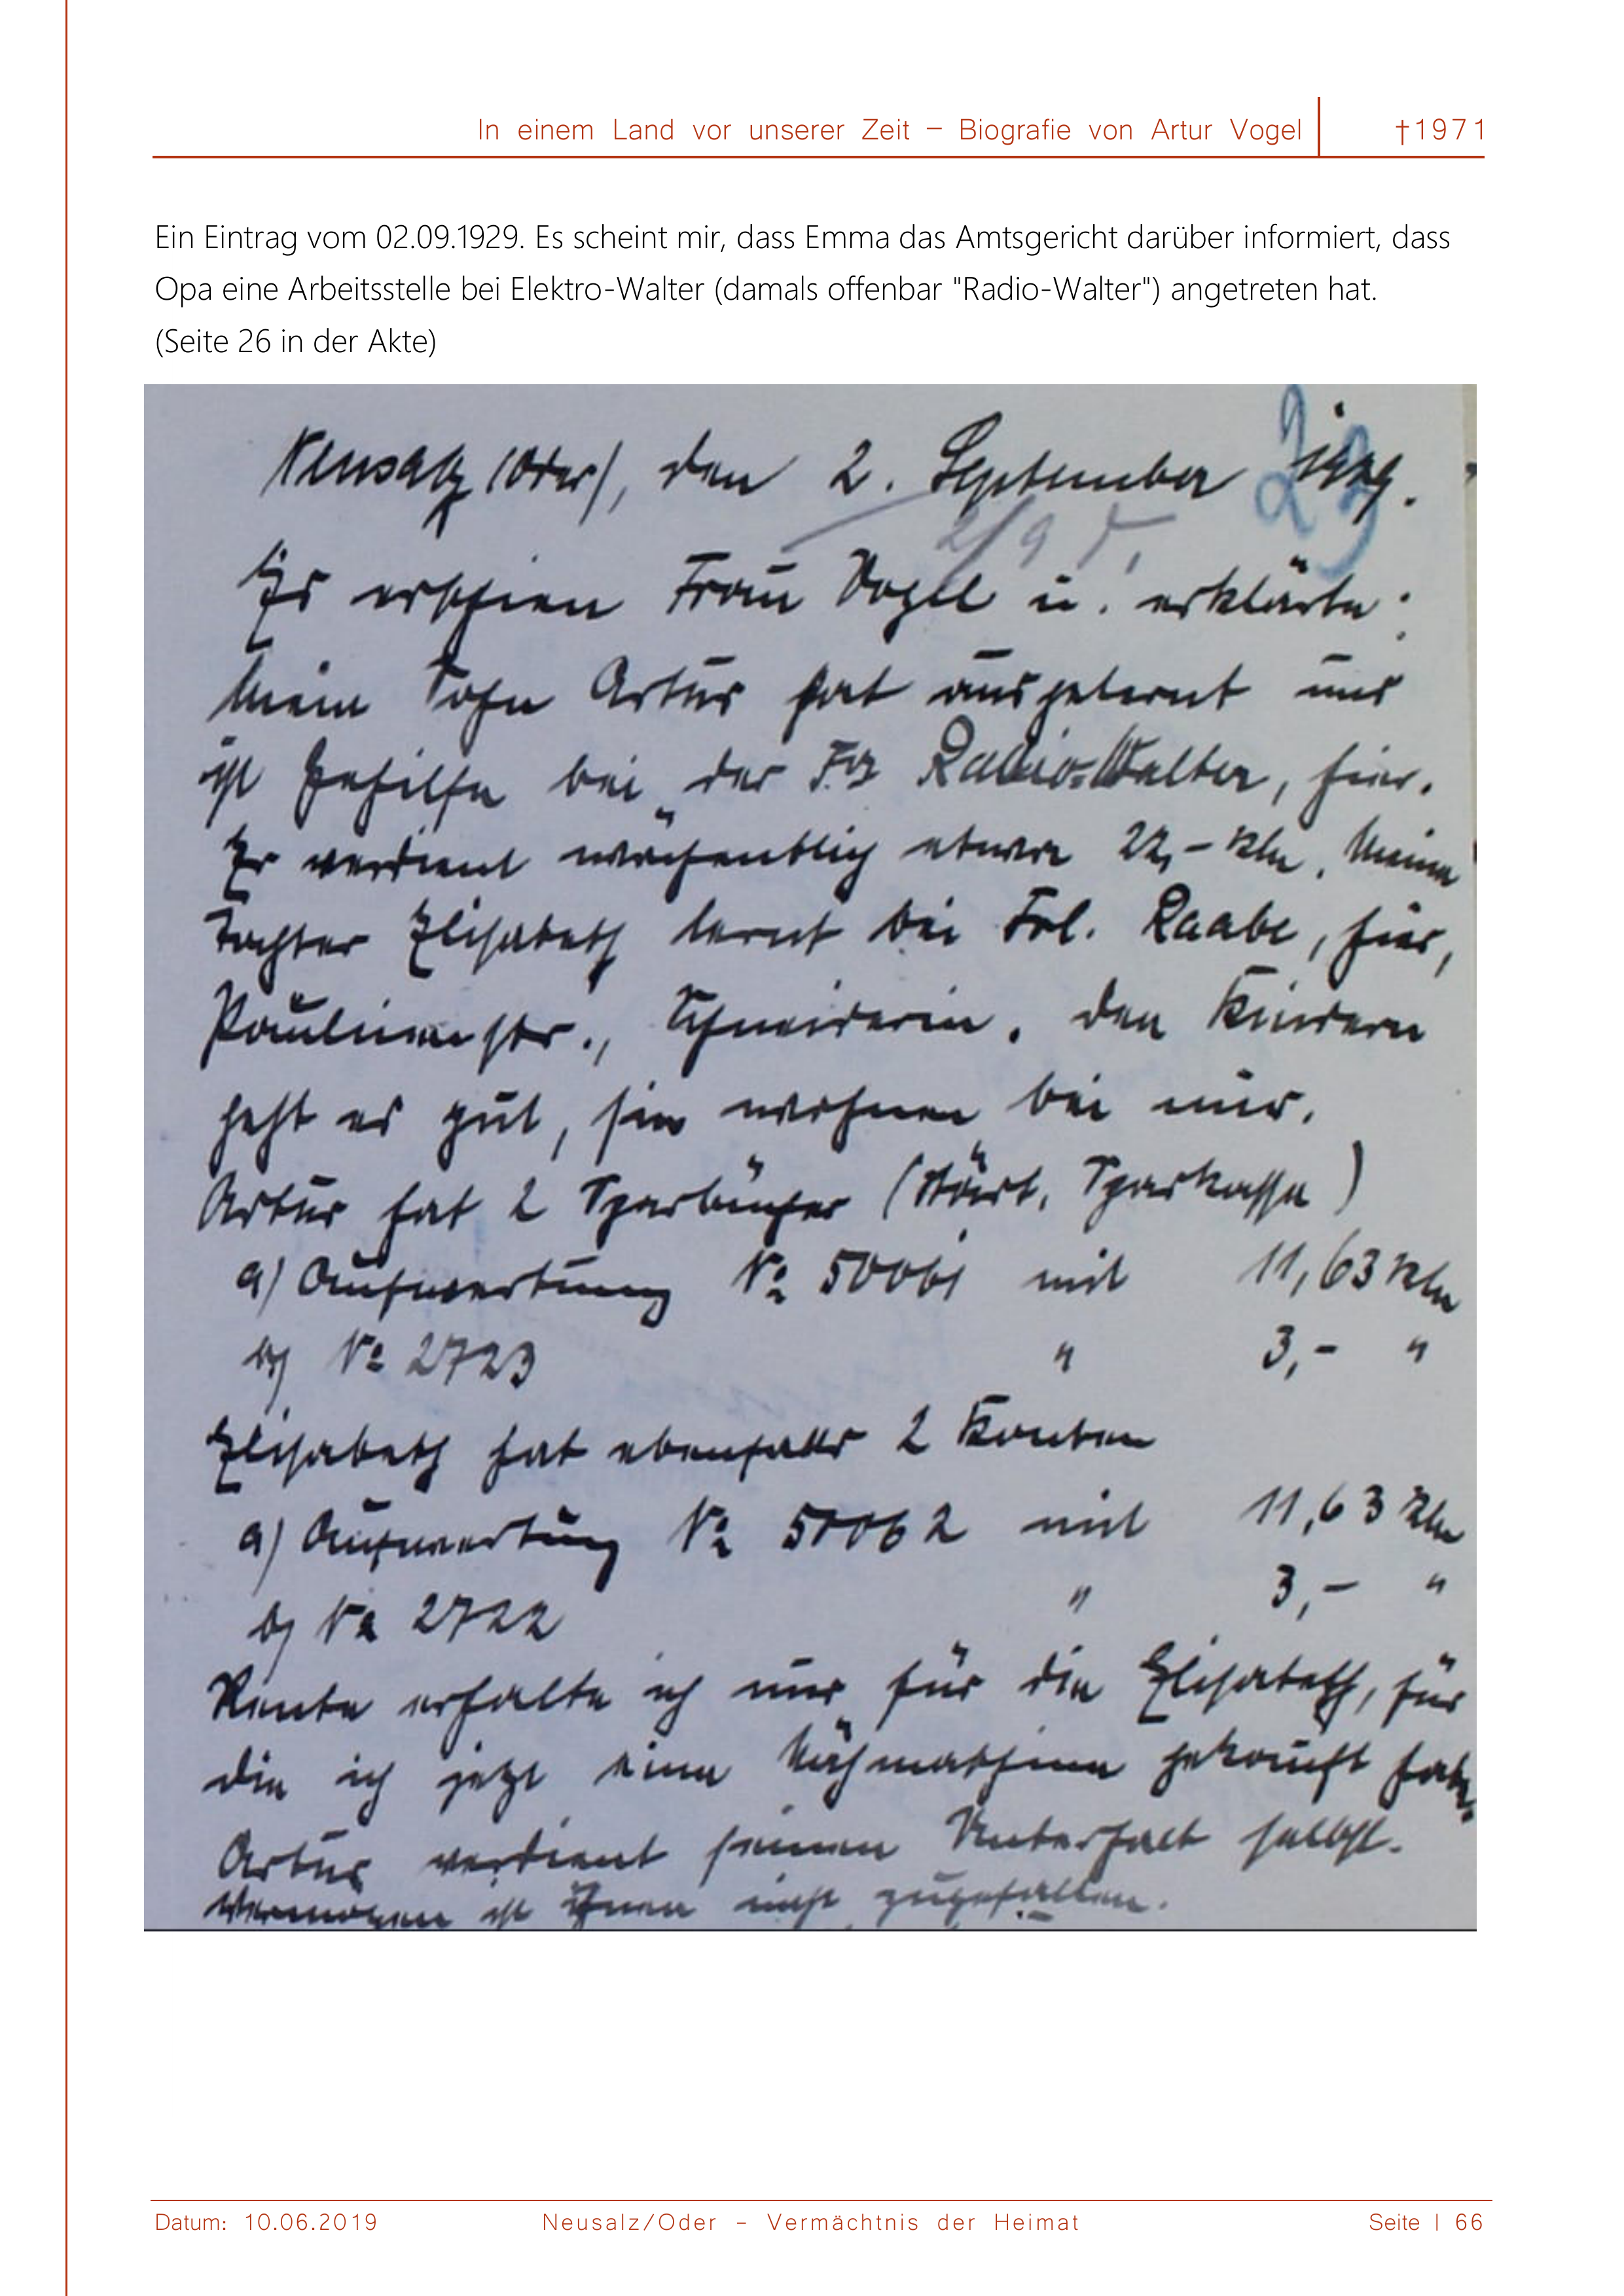 In einem Land vor unserer Zeit – Biografie von Artur Vogel †1971
Ein Eintrag vom 02.09.1929. Es scheint mir, dass Emma das Amtsgericht darüber informiert, dass
Opa eine Arbeitsstelle bei Elektro-Walter (damals offenbar "Radio-Walter") angetreten hat.
(Seite 26 in der Akte)
Neusalz (Oder), den 2. September 1929.
Es erschien Frau Vogel u. erklärte:
Mein Sohn Artur hat ausgelernt und
ist Gehilfe bei der Fa Radio-Walter, hier.
Er verdient wöchentlich etwa 22,- RM. Meine
Tochter Elisabeth lernt bei Frl. Raabe, hier,
Paulinenstr., Schneiderin. Den Kindern
geht es gut, sie wohnen bei mir.
Artur hat 2 Sparbücher (Städt. Sparkasse)
a) Aufwertung No 50061 mit 11,63 RM
b) No 2723 " 3,- "
Elisabeth hat ebenfalls 2 Konten
a) Aufwertung No 50062 mit 11,63 RM
b) No 2722 " 3,- "
Rente erhalte ich nur für die Elisabeth, für
die ich jetzt eine Nähmaschine gekauft habe.
Artur verdient seinen Unterhalt selbst.
Vermögen ist ihnen nicht zugefallen.
Datum: 10.06.2019 Neusalz/Oder – Vermächtnis der Heimat Seite | 66